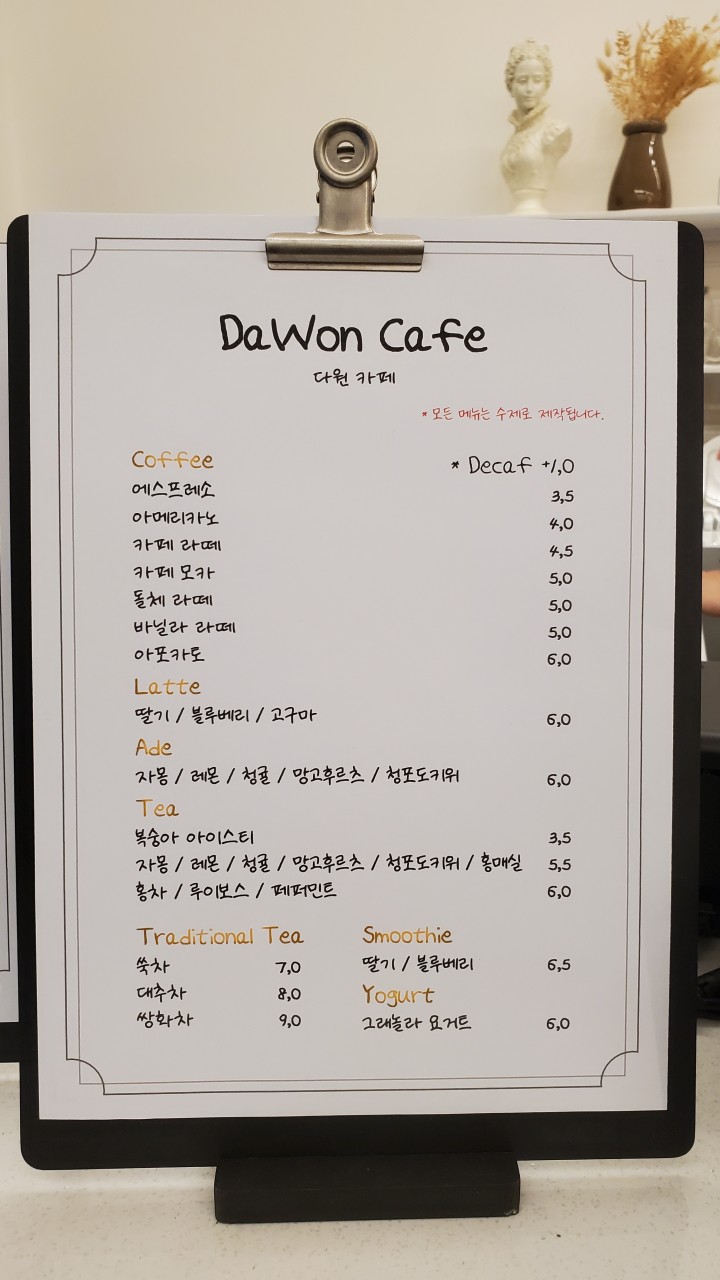 DaWon Cafe
다원 카페
* 모든 메뉴는 수제로 제작됩니다.
Coffee * Decaf +1,0
에스프레소 3,5
아메리카노 4,0
카페 라떼 4,5
카페 모카 5,0
돌체 라떼 5,0
바닐라 라떼 5,0
아포카토 6,0
Latte
딸기 / 블루베리 / 고구마 6,0
Ade
자몽 / 레몬 / 청귤 / 망고후르츠 / 청포도키위 6,0
Tea
복숭아 아이스티 3,5
자몽 / 레몬 / 청귤 / 망고후르츠 / 청포도키위 / 홍매실 5,5
홍차 / 루이보스 / 페퍼민트 6,0
Traditional Tea
쑥차 7,0
대추차 8,0
쌍화차 9,0
Smoothie
딸기 / 블루베리 6,5
Yogurt
그래놀라 요거트 6,0